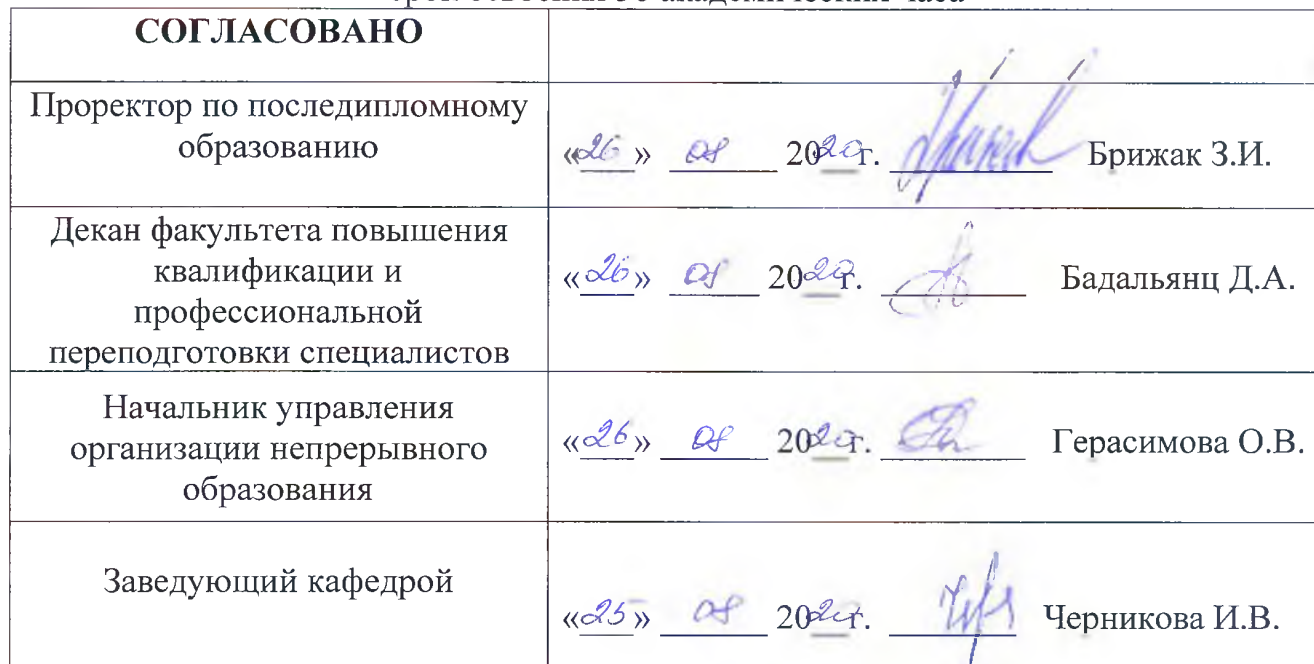 СОГЛАСОВАНО
Проректор по последипломному
образованию
«26» 08 2020г. Брижак З.И.
Декан факультета повышения
квалификации и
профессиональной
переподготовки специалистов
«26» 08 2020г. Бадальянц Д.А.
Начальник управления
организации непрерывного
образования
«26» 08 2020г. Герасимова О.В.
Заведующий кафедрой
«25» 08 2020г. Черникова И.В.